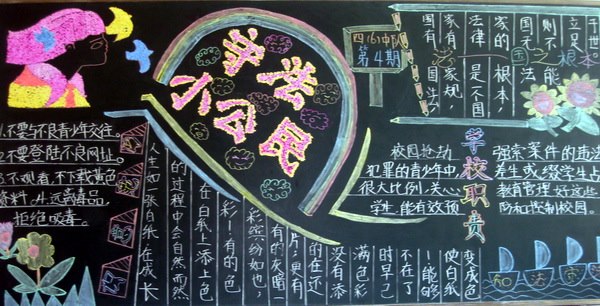 争当小公民
四(6)中队
第4期
国有国法
家有家规，
法律是一个国
家的根本，
国无法
则不能
立足
于世
国之根本
1.不要与不良青少年交往。
2.不要登陆不良网址。
3.不观看、不下载黄色
资料，4.远离毒品，
拒绝吸毒。
学校职责
校园抢劫
犯罪的青少年中，
很大比例，关心
学生能有效预
强索案件的违法
差生或缀学生占
教育管理好这些
防和控制校园。
人生如一张白纸
在成长
的过程中会自然而然
在白纸上添上色
彩！有的色
彩缤纷如也；
有的灰暗一
片；更有
的还在
没有添
满色彩
时早已
不在了
！能够
使白纸
变成色
知法守法